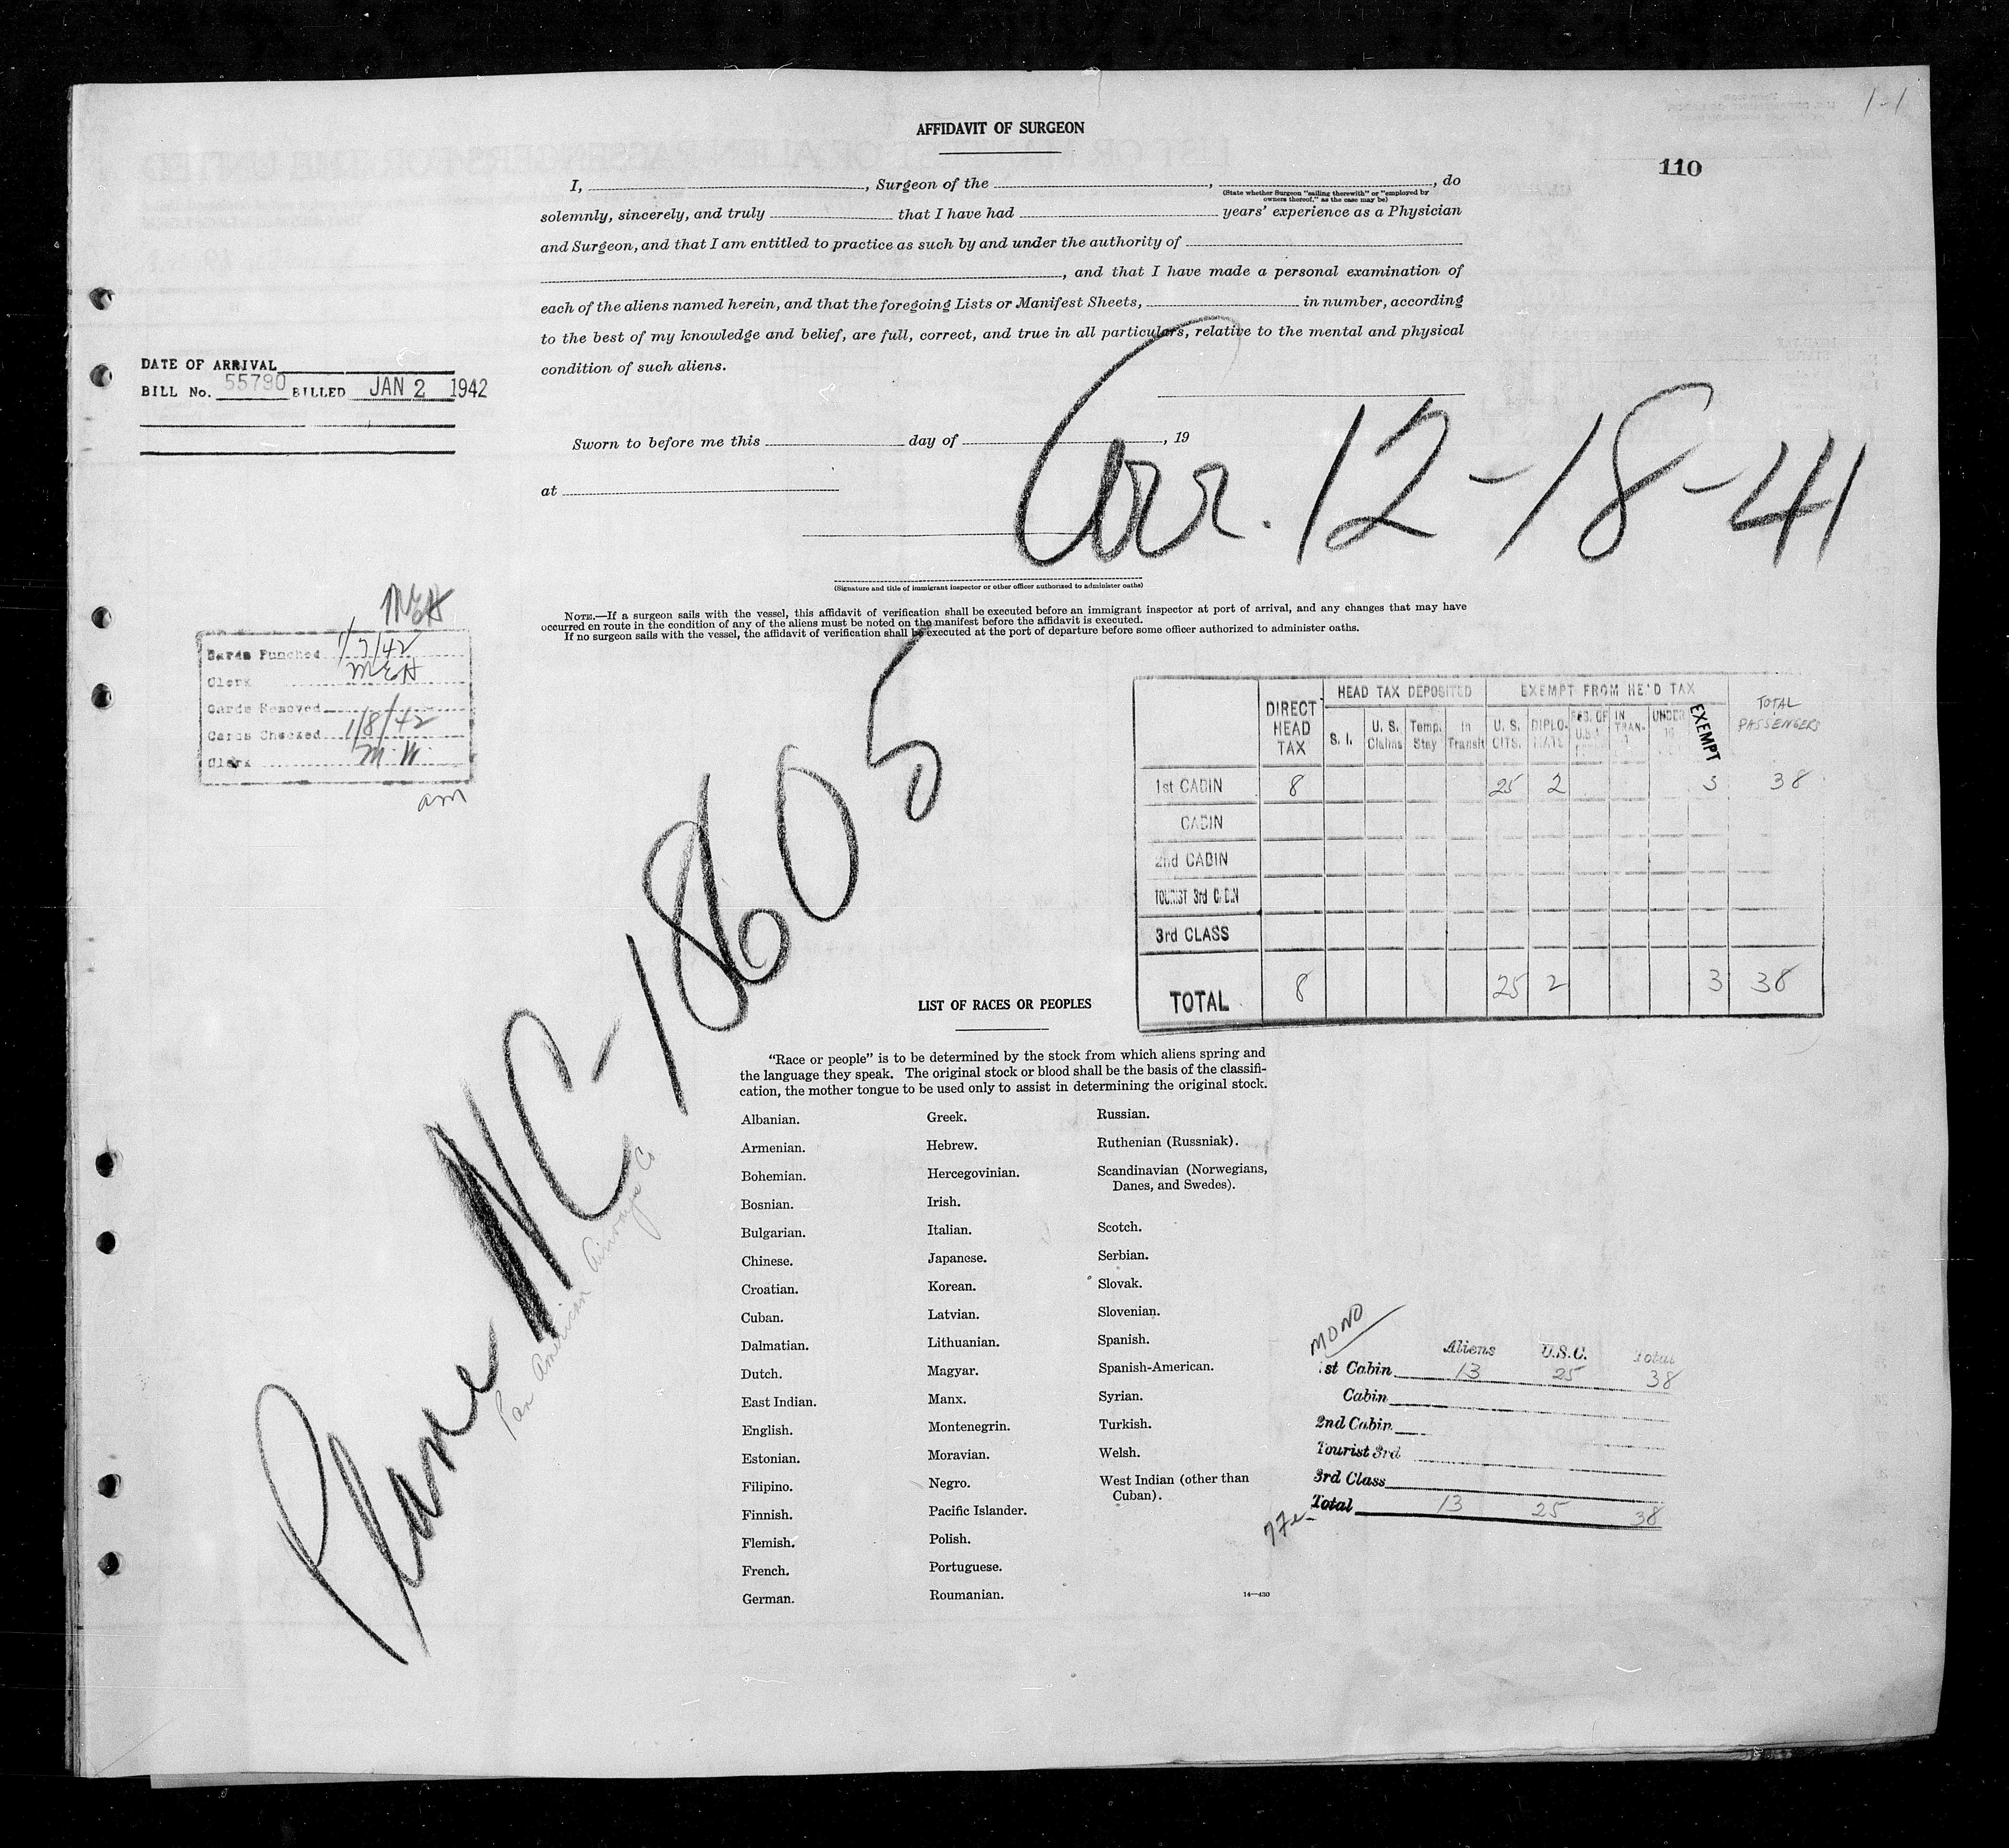 1-1
AFFIDAVIT OF SURGEON
110
I, , Surgeon of the , , do
(State whether Surgeon "sailing therewith" or "employed by
owners thereof," as the case may be)
solemnly, sincerely, and truly that I have had years' experience as a Physician
and Surgeon, and that I am entitled to practice as such by and under the authority of
, and that I have made a personal examination of
each of the aliens named herein, and that the foregoing Lists or Manifest Sheets, in number, according
to the best of my knowledge and belief, are full, correct, and true in all particulars, relative to the mental and physical
condition of such aliens.
DATE OF ARRIVAL
BILL No. 55790 BILLED JAN 2 1942
Sworn to before me this day of , 19
at
Arr. 12-18-41
(Signature and title of immigrant inspector or other officer authorized to administer oaths)
NOTE.—If a surgeon sails with the vessel, this affidavit of verification shall be executed before an immigrant inspector at port of arrival, and any changes that may have
occurred en route in the condition of any of the aliens must be noted on the manifest before the affidavit is executed.
If no surgeon sails with the vessel, the affidavit of verification shall be executed at the port of departure before some officer authorized to administer oaths.
MEH
Cards Punched 1/7/42
Clerk MEH
Cards Removed
Cards Checked 1/8/42
Clerk M.W.
am
Plane NC-18605
Pan American Airways Co
HEAD TAX DEPOSITED EXEMPT FROM HEAD TAX
DIRECT HEAD TAX S. I. U. S. Claims Temp. Stay In Transit U. S. CITS. DIPLO- MATS RES. OF U.S.A. IN TRAN- UNDER 16 EXEMPT TOTAL PASSENGERS
1st CABIN 8 25 2 3 38
CABIN
2nd CABIN
TOURIST 3rd CABIN
3rd CLASS
TOTAL 8 25 2 3 38
LIST OF RACES OR PEOPLES
"Race or people" is to be determined by the stock from which aliens spring and
the language they speak. The original stock or blood shall be the basis of the classifi-
cation, the mother tongue to be used only to assist in determining the original stock.
Albanian.
Armenian.
Bohemian.
Bosnian.
Bulgarian.
Chinese.
Croatian.
Cuban.
Dalmatian.
Dutch.
East Indian.
English.
Estonian.
Filipino.
Finnish.
Flemish.
French.
German.
Greek.
Hebrew.
Hercegovinian.
Irish.
Italian.
Japanese.
Korean.
Latvian.
Lithuanian.
Magyar.
Manx.
Montenegrin.
Moravian.
Negro.
Pacific Islander.
Polish.
Portuguese.
Roumanian.
Russian.
Ruthenian (Russniak).
Scandinavian (Norwegians,
Danes, and Swedes).
Scotch.
Serbian.
Slovak.
Slovenian.
Spanish.
Spanish-American.
Syrian.
Turkish.
Welsh.
West Indian (other than
Cuban).
14—430
MONO
Aliens U.S.C. Total
1st Cabin 13 25 38
Cabin
2nd Cabin
Tourist 3rd
3rd Class
Total 13 25 38